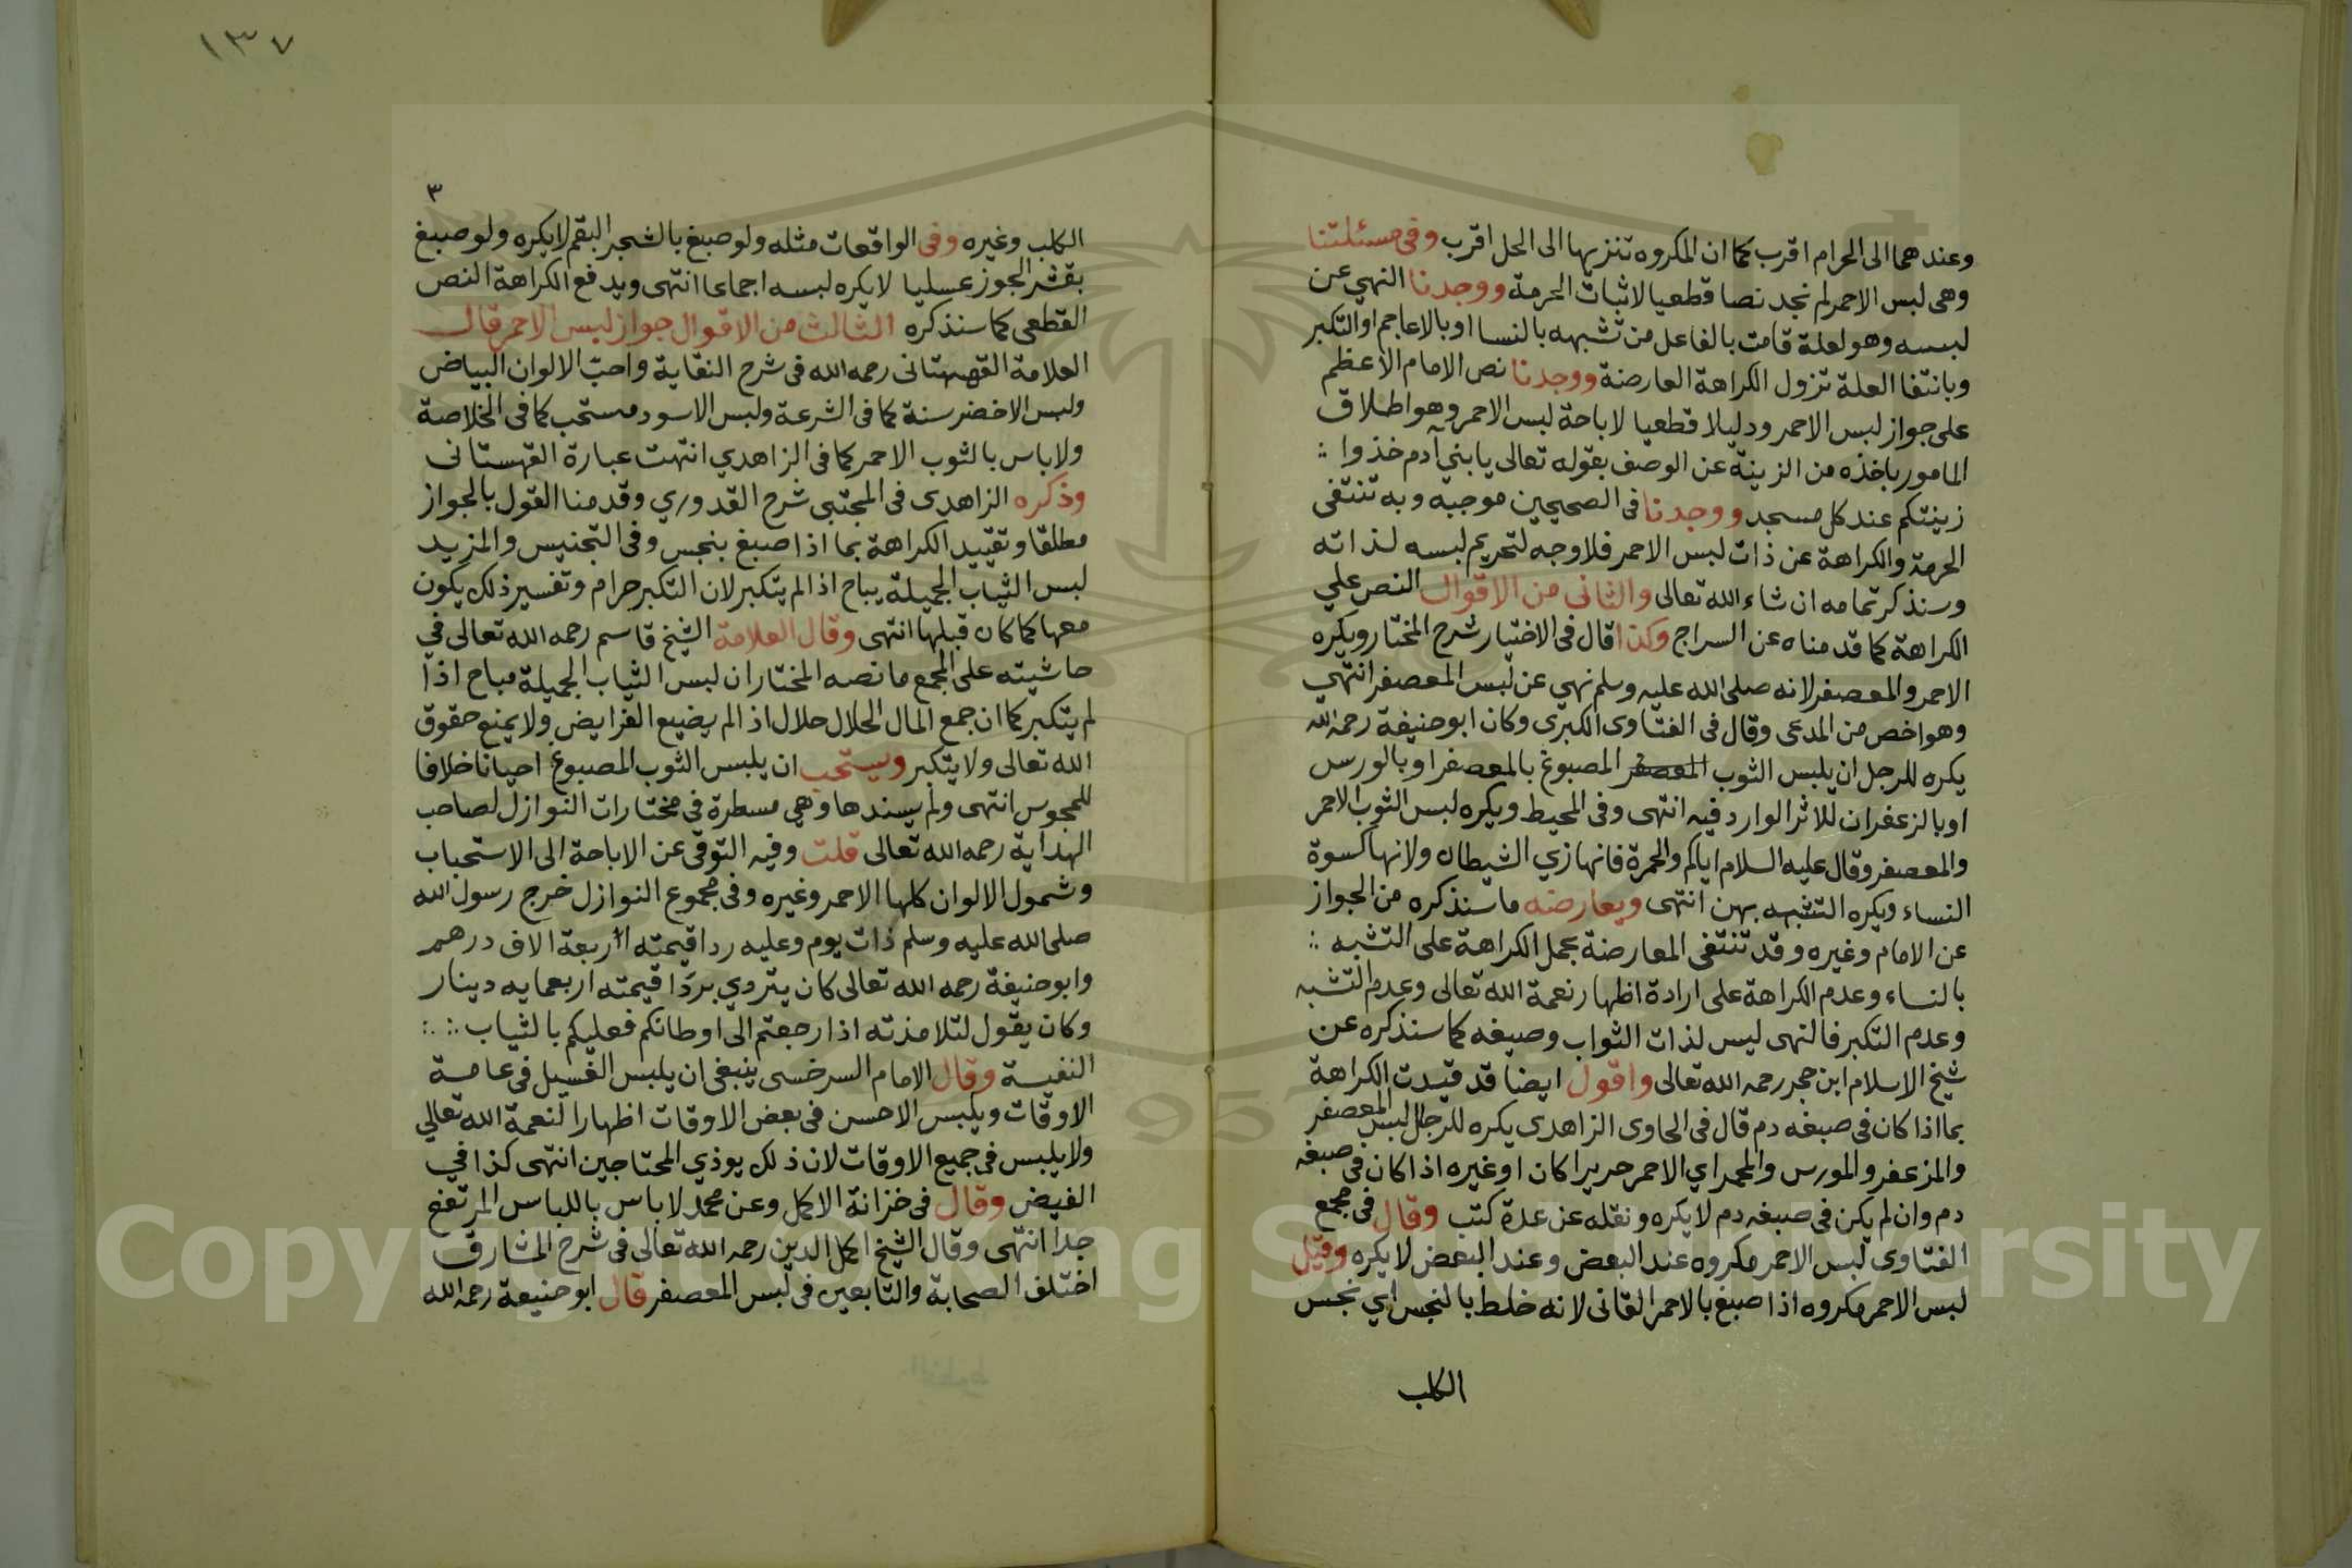 وعندهما الى الحرام اقرب كما ان المكروه تنزيها الى الحل اقرب وفى مسئلتنا
وهى لبس الاحمر لم نجد نصا قطعيا لاثبات الحرمة ووجدنا النهي عن
لبسه وهو لعلة قامت بالفاعل من تشبهه بالنسا او بالاعاجم او التكبر
وبانتفا العلة تزول الكراهة العارضة ووجدنا نص الامام الاعظم
على جواز لبس الاحمر ودليلا قطعيا لاباحة لبس الاحمر وهو اطلاق
المامور باخذه من الزينة عن الوصف بقوله تعالى يا بني آدم خذوا
زينتكم عند كل مسجد ووجدنا فى الصحيحين موجبه وبه تنتفى
الحرمة والكراهة عن ذات لبس الاحمر فلا وجه لتحريم لبسه لذاته
وسنذكر تمامه ان شاء الله تعالى والثانى من الاقوال النص علي
الكراهة كما قدمناه عن السراج وكذا قال فى الاختيار شرح المختار ويكره
الاحمر والمعصفر لانه صلى الله عليه وسلم نهي عن لبس المعصفر انتهي
وهو اخص من المدعى وقال فى الفتاوى الكبرى وكان ابو حنيفة رحمه الله
يكره للرجل ان يلبس الثوب المعصفر المصبوغ بالمعصفر او بالورس
او بالزعفران للاثر الوارد فيه انتهى وفى المحيط ويكره لبس الثوب الاحمر
والمعصفر وقال عليه السلام اياكم والحمرة فانها زي الشيطان ولانها كسوة
النساء ويكره التشبه بهن انتهى ويعارضه ما سنذكره من الجواز
عن الامام وغيره وقد تنتفى المعارضة بحمل الكراهة على التشبه
بالنساء وعدم الكراهة على ارادة اظهار نعمة الله تعالى وعدم التشبه
وعدم التكبر فالنهى ليس لذات الثواب وصبغه كما سنذكره عن
شيخ الاسلام ابن حجر رحمه الله تعالى واقول ايضا قد قيدت الكراهة
بما اذا كان فى صبغه دم قال فى الحاوى الزاهدى يكره للرجال لبس المعصفر
والمزعفر والمورس والمحمر اي الاحمر حريرا كان او غيره اذا كان فى صبغه
دم وان لم يكن فى صبغه دم لا يكره ونقله عن عدة كتب وقال فى مجمع
الفتاوى لبس الاحمر مكروه عند البعض وعند البعض لا يكره وقيل
لبس الاحمر مكروه اذا صبغ بالاحمر القانى لانه خلط بالنجس اي نجس
الكلب
١٣٧
٣
الكلب وغيره وفى الواقعات مثله ولو صبغ بالشجر البقم لا يكره ولو صبغ
بقشر الجوز عسليا لا يكره لبسه اجماعا انتهى ويدفع الكراهة النص
القطعى كما سنذكره الثالث من الاقوال جواز لبس الاحمر قال
العلامة القهستانى رحمه الله فى شرح النقاية واحب الالوان البياض
ولبس الاخضر سنة كما فى الشرعة ولبس الاسود مستحب كما فى الخلاصة
ولا باس بالثوب الاحمر كما فى الزاهدي انتهت عبارة القهستانى
وذكره الزاهدى فى المجتبى شرح القدوري وقدمنا القول بالجواز
مطلقا وتقييد الكراهة بما اذا صبغ بنجس وفى التجنيس والمزيد
لبس الثياب الجميلة يباح اذا لم يتكبر لان التكبر حرام وتفسير ذلك يكون
معها كما كان قبلها انتهى وقال العلامة الشيخ قاسم رحمه الله تعالى في
حاشيته على المجمع ما نصه المختار ان لبس الثياب الجميلة مباح اذا
لم يتكبر كما ان جمع المال الحلال حلال اذ الم يضيع الفرايض ولا يمنع حقوق
الله تعالى ولا يتكبر ويستحب ان يلبس الثوب المصبوغ احيانا خلافا
للمجوس انتهى ولم يسندها وهي مسطرة فى مختارات النوازل لصاحب
الهداية رحمه الله تعالى قلت وفيه الترقى عن الاباحة الى الاستحباب
وشمول الالوان كلها الاحمر وغيره وفى مجموع النوازل خرج رسول الله
صلى الله عليه وسلم ذات يوم وعليه ردا قيمته اربعة الاف درهم
وابو حنيفة رحمه الله تعالى كان يتردي بردا قيمته اربعمايه دينار
وكان يقول لتلامذته اذا رجعتم الى اوطانكم فعليكم بالثياب
النفيسة وقال الامام السرخسى ينبغى ان يلبس الغسيل فى عامة
الاوقات ويلبس الاحسن فى بعض الاوقات اظهارا لنعمة الله تعالي
ولا يلبس فى جميع الاوقات لان ذلك يوذي المحتاجين انتهى كذا في
الفيض وقال فى خزانة الاكمل وعن محمد لا باس باللباس المرتفع
جدا انتهى وقال الشيخ اكمل الدين رحمه الله تعالى فى شرح المشارق
اختلف الصحابة والتابعين فى لبس المعصفر قال ابو حنيفة رحمه الله
Copyright © King Saud University